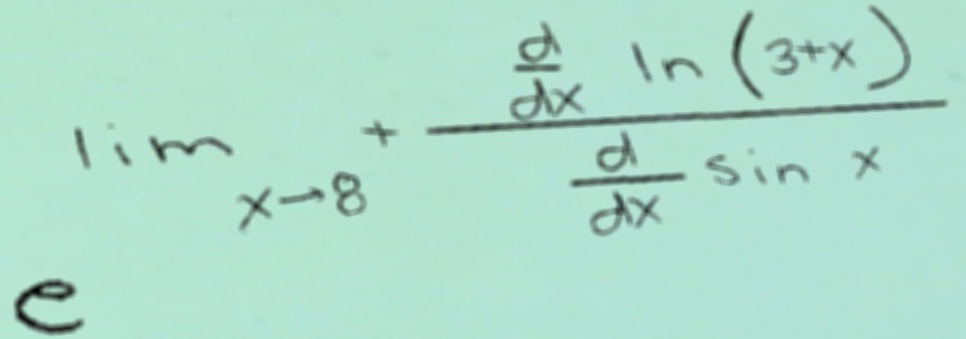 e^{\lim_{x \to 8^+} \frac{\frac{d}{dx} \ln (3+x)}{\frac{d}{dx} \sin x}}